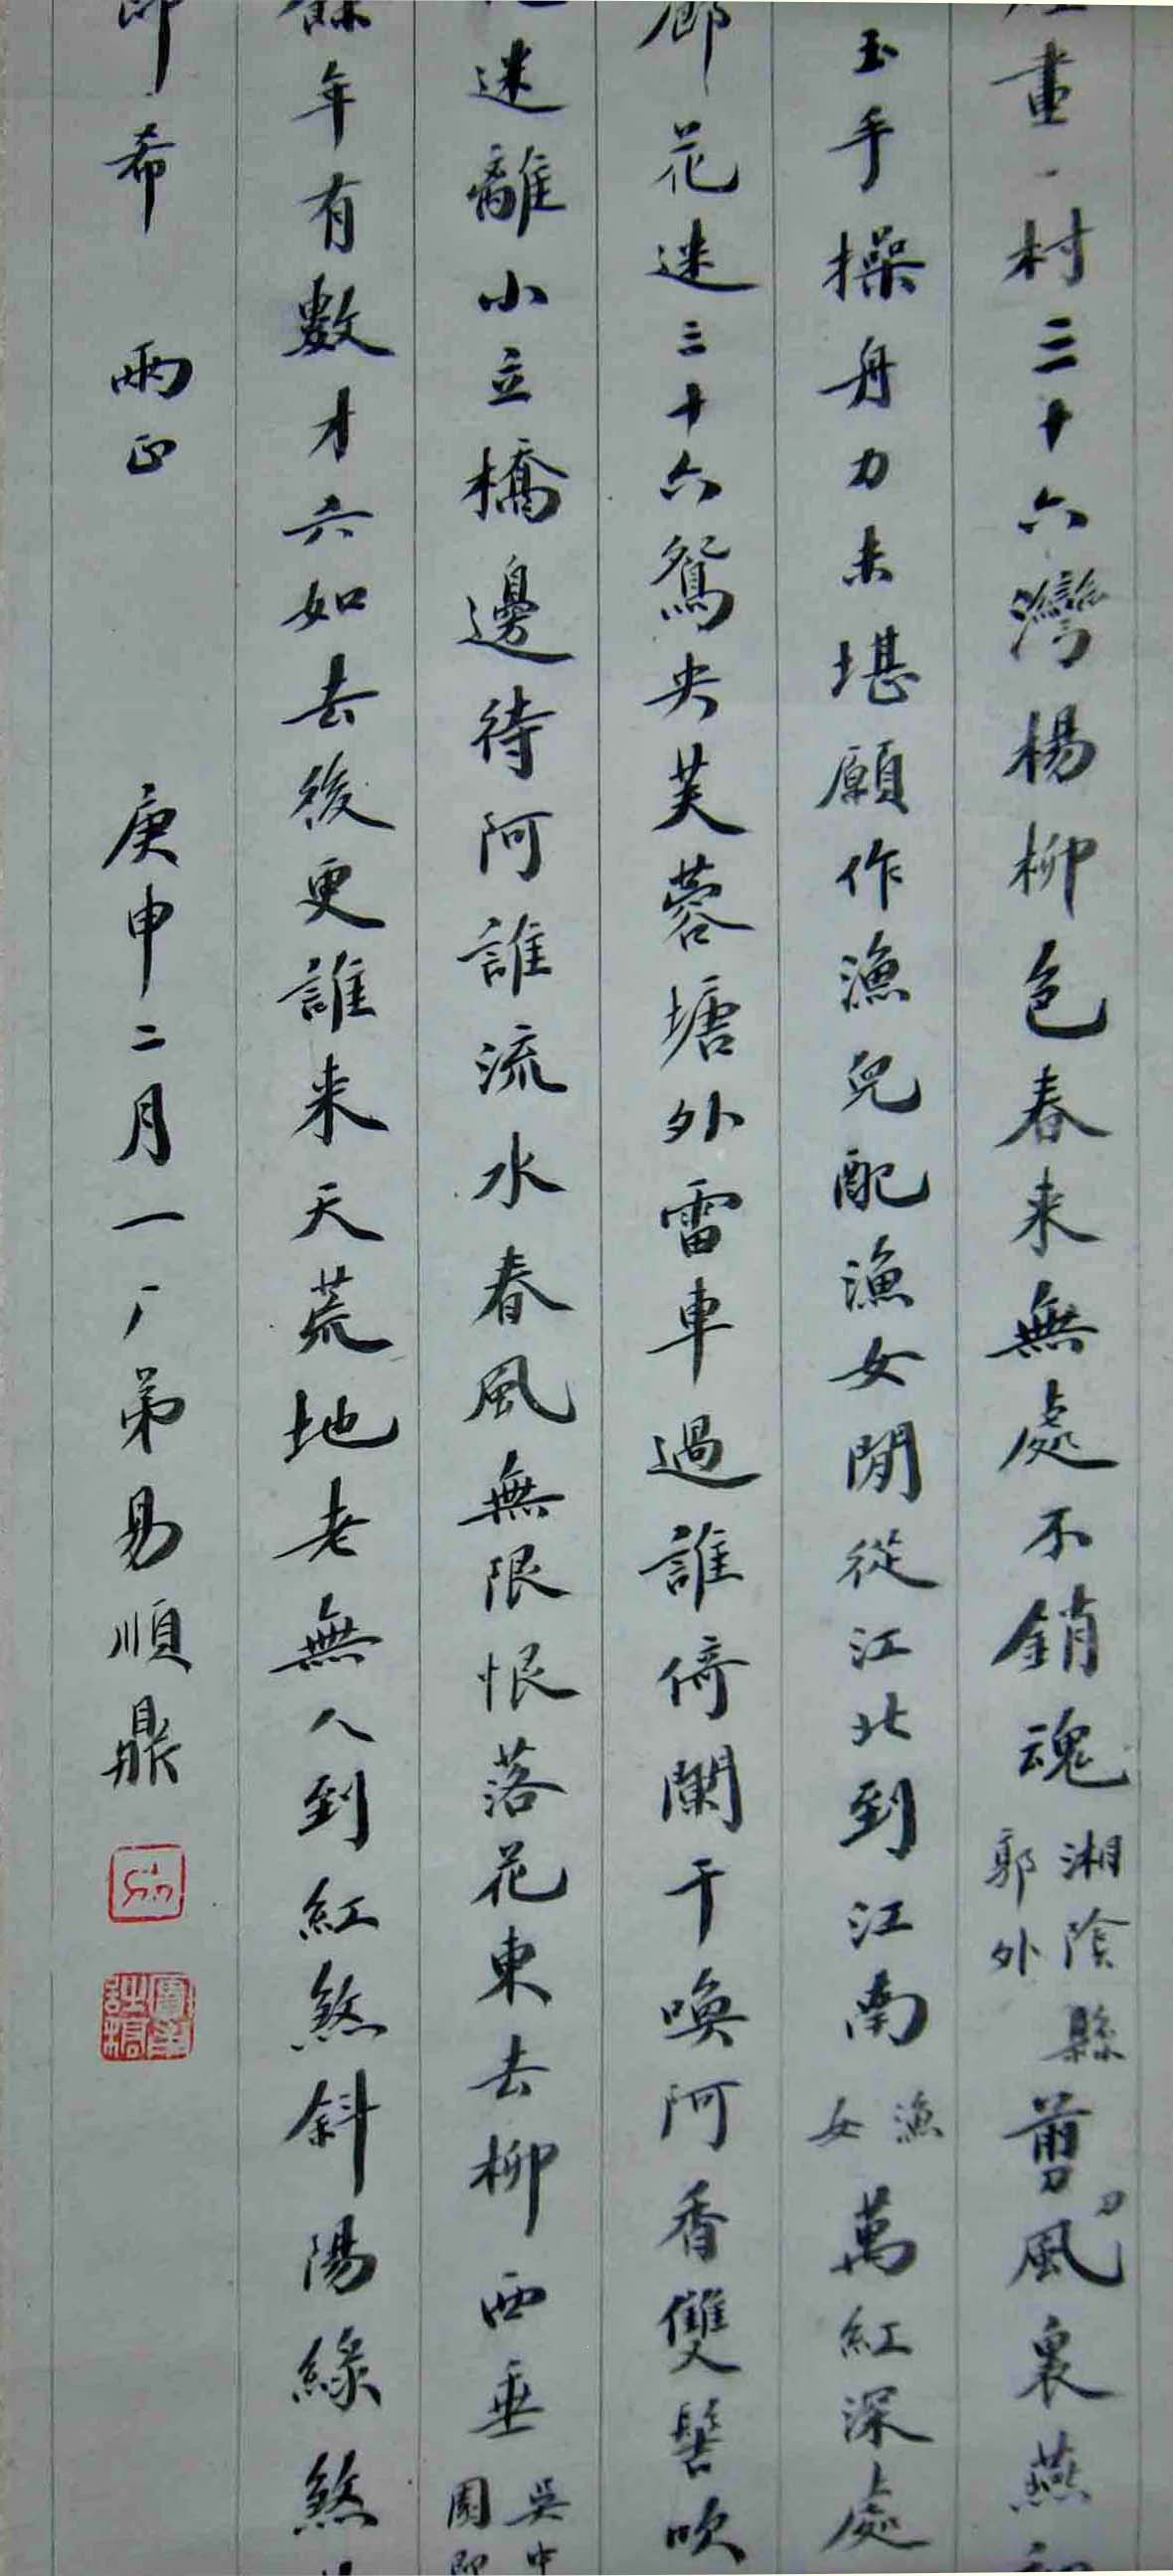 畫村三十六灣楊柳色春来無處不銷魂湘陰縣郭外剪刀風裏燕
玉手操舟力未堪願作漁兒配漁女閒從江北到江南漁女萬紅深處
廊花迷三十六鴛央芙蓉塘外雷車過誰倚闌干喚阿香雙髻吹
迷離小立橋邊待阿誰流水春風無限恨落花東去柳西垂吳中園
餘年有數才六如去後更誰来天荒地老無人到紅煞斜陽綠煞
即希 兩正 庚申二月一厂弟易順鼎